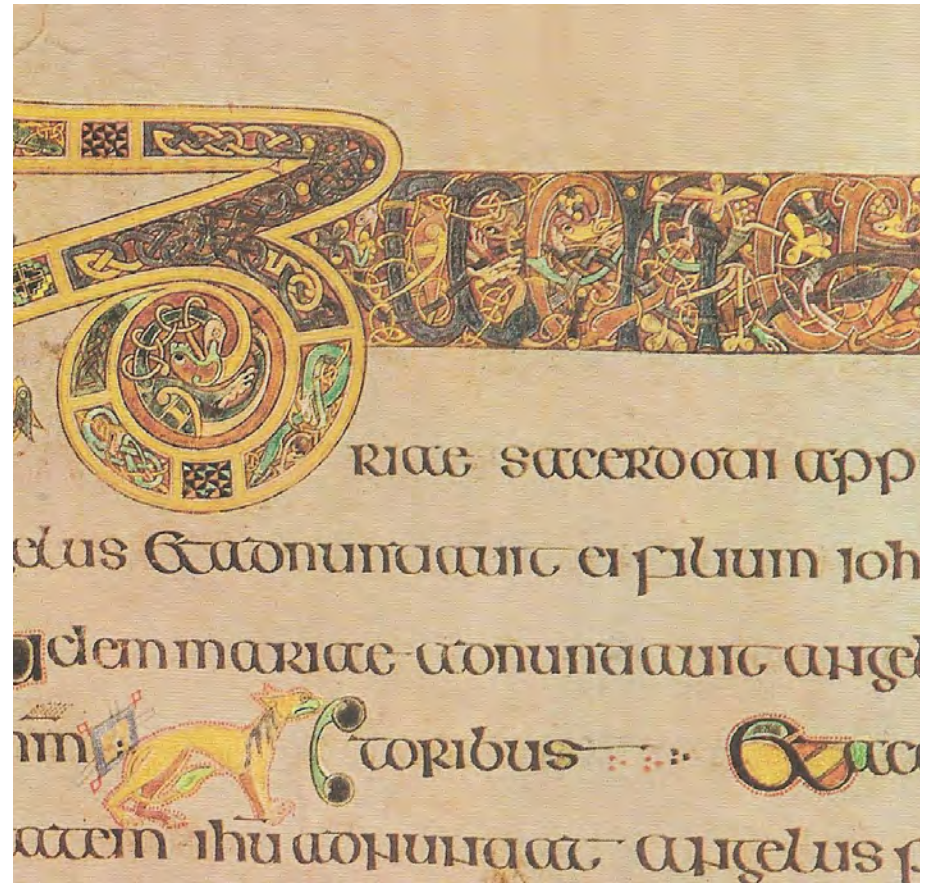 Z
riae sacerdoti app
elus Et adnuntiauit ei filium ioh
demmariae adnuntiauit angel
toribus Et acc
atem ihū adnuntiat angelus p